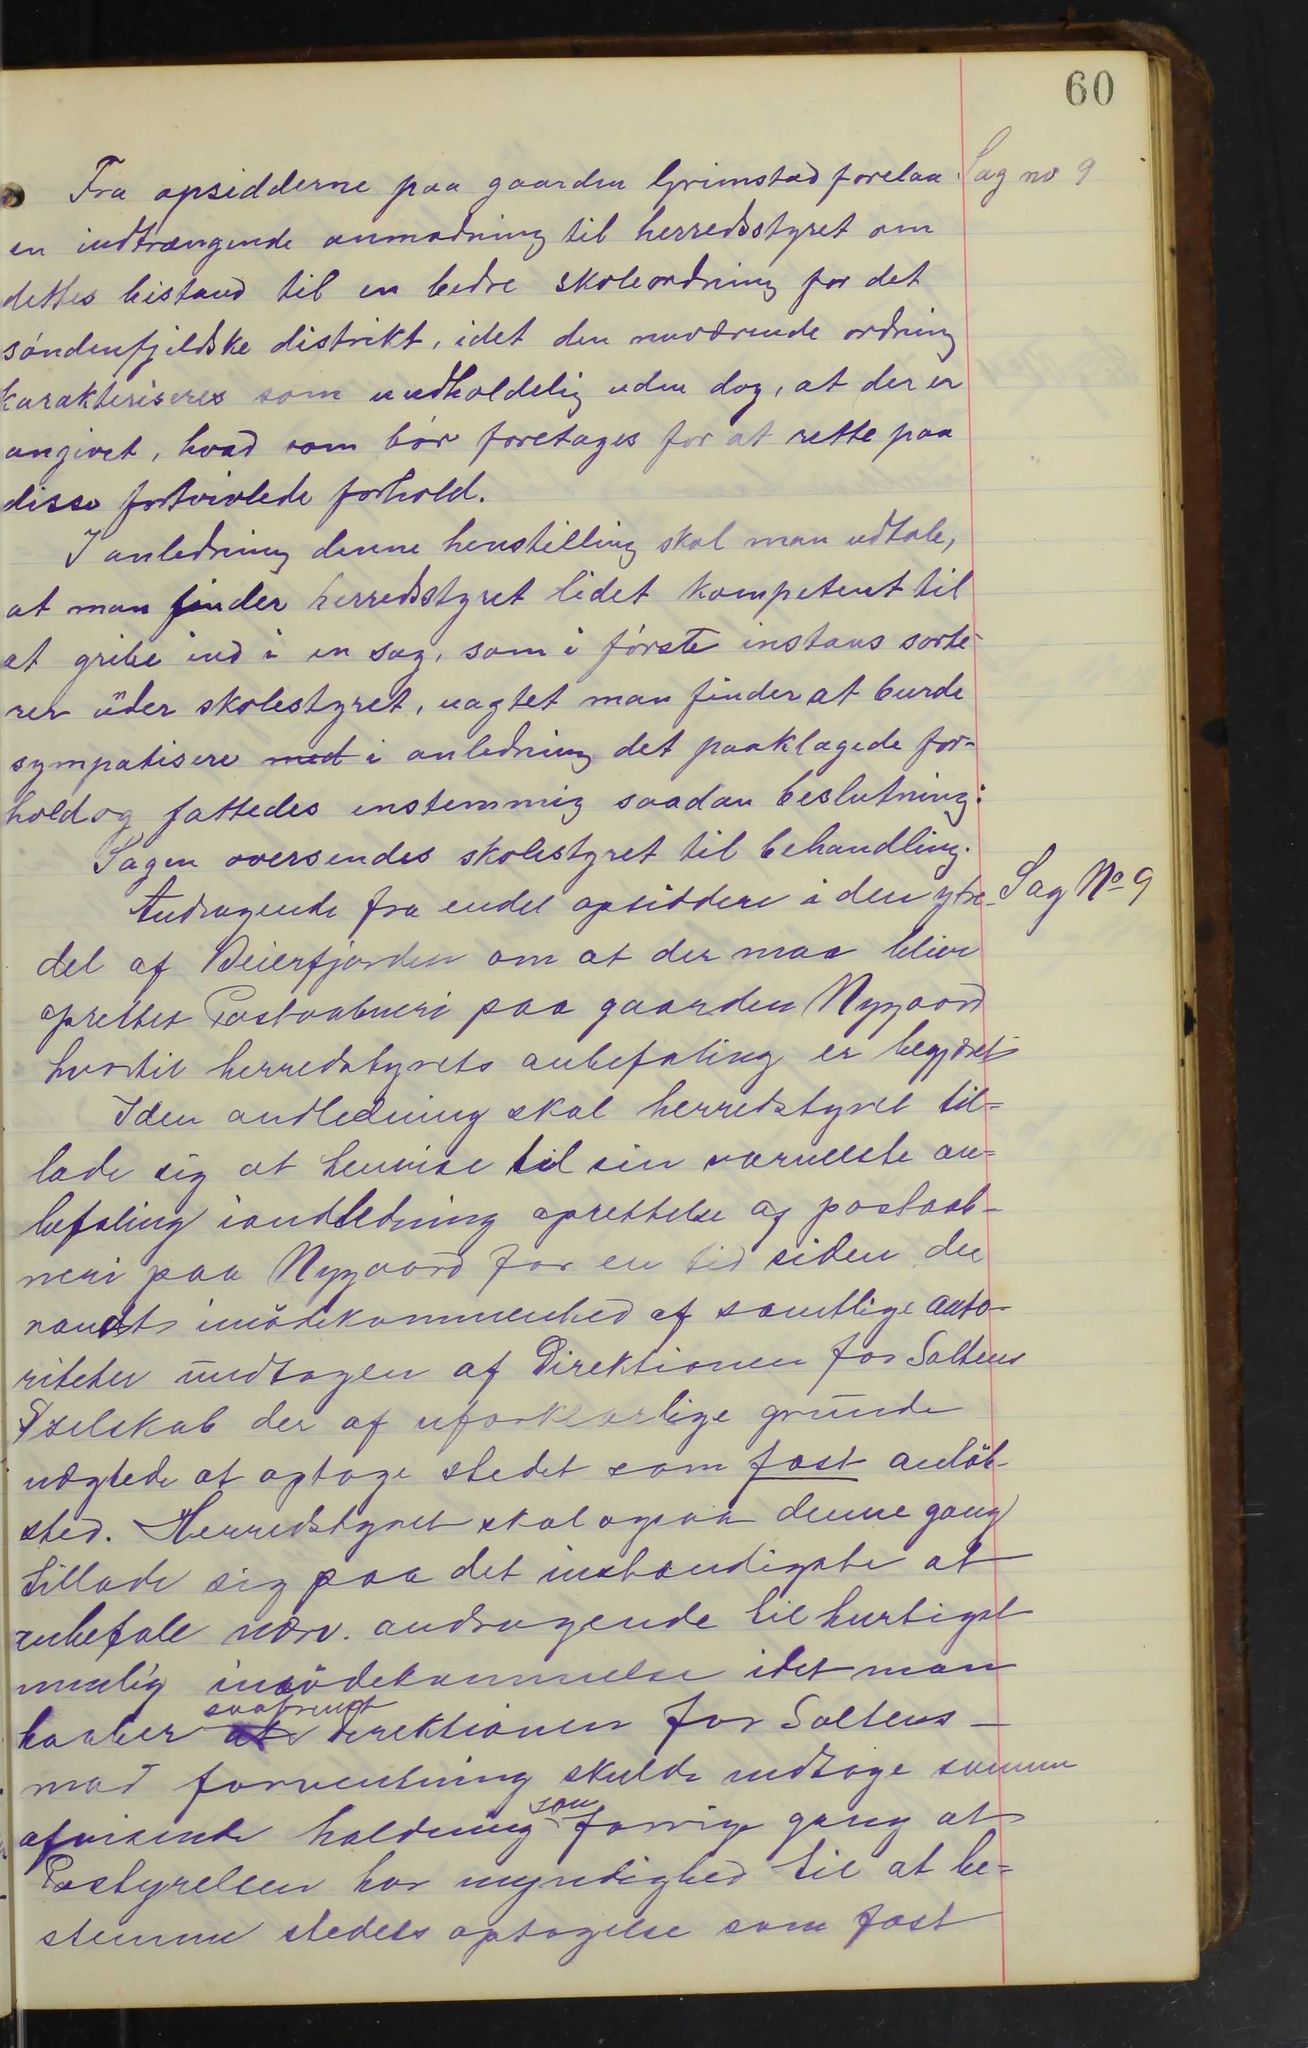 60
Fra opsidderne paa gaarden Grimstad forelaa Sag no 9
en indtrængende anmodning til herredsstyret om
dettes bistand til en bedre skoleordning for det
søndenfjeldske distrikt, idet den nuværende ordning
karakteriseres som uudholdelig uden dog, at der er
angivet, hvad som bør foretages for at rette paa
disse fortvivlede forhold.
I anledning denne henstilling skal man udtale,
at man finder herredsstyret lidet kompetent til
at gribe ind i en sag, som i første instans sorte-
rer üder skolestyret, uagtet man finder at burde
sympatisere med i anledning det paaklagede for-
hold og fattedes enstemmig saadan beslutning:
Sagen oversendes skolestyret til behandling.
Andragende fra endel opsiddere i den ytre Sag No 9
del af Beierfjorden om at der maa blive
oprettet Postaabneri paa gaarden Nygaard
hvortil herredstyrets anbefaling er begjært
I den andledning skal herredstyret til=
lade sig at henvise til sin varmeste an=
befaling iandledning oprettelse af postaab-
neri paa Nygaard for en tid siden der
vandt imødekommenhed af samtlige auto-
riteter undtagen af Direktionen for Saltens
Dselskab der af uforklarlige grunde
nægtede at optage stedet som fast anløb-
sted. Herredstyret skal ogsaa denne gang
tillade sig paa det instændigste at
anbefale nærv. andragende til hurtigst
mulig imødekommelse idet man
haaber saafremt direktionen for Saltens
mod forventning skulde indtage samme
afvisende holdning som forrige gang at
Postyrelsen har myndighed til at be=
stemme stedets optagelse som fast